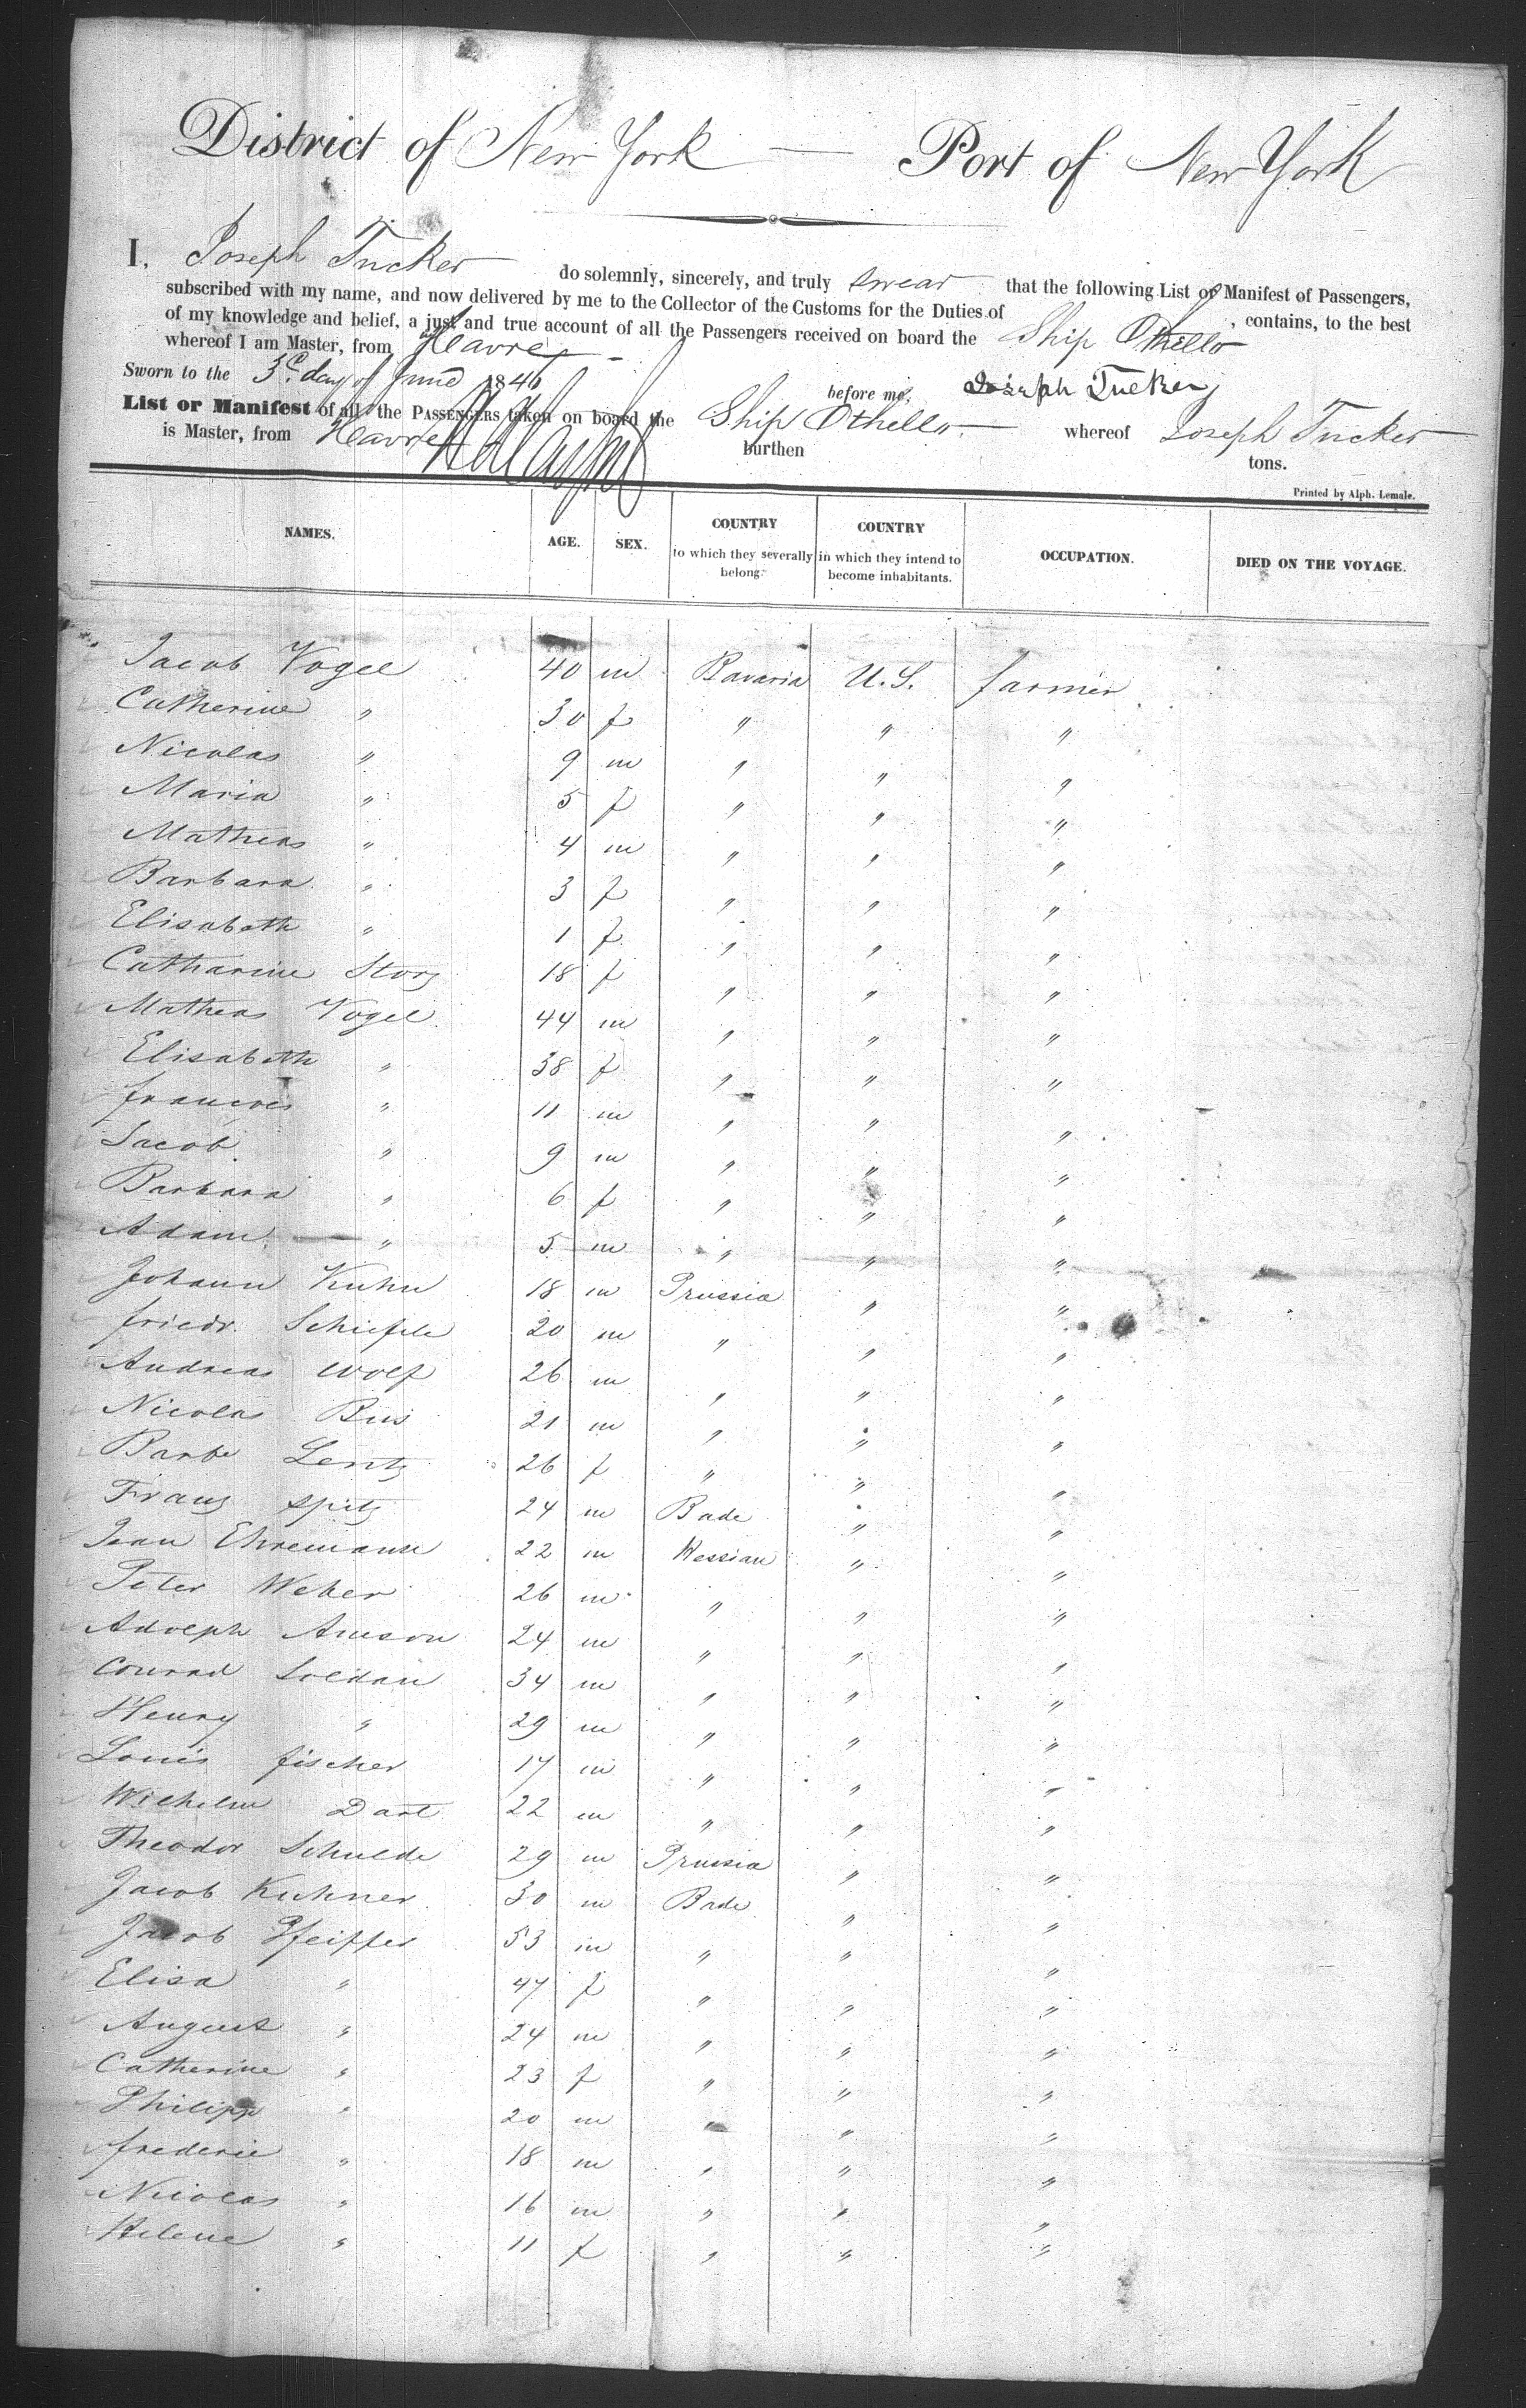 District of New York — Port of New York
I, Joseph Tucker do solemnly, sincerely, and truly swear that the following List or Manifest of Passengers,
subscribed with my name, and now delivered by me to the Collector of the Customs for the Duties of , contains, to the best
of my knowledge and belief, a just and true account of all the Passengers received on board the Ship Othello
whereof I am Master, from Havre
Sworn to the 3d. day of June 1846 before me, Joseph Tucker
List or Manifest of all the PASSENGERS taken on board the Ship Othello whereof Joseph Tucker
is Master, from Havre burthen tons.
Printed by Alph. Lemale.
NAMES. AGE. SEX. COUNTRY to which they severally belong. COUNTRY in which they intend to become inhabitants. OCCUPATION. DIED ON THE VOYAGE.
Jacob Vogel 40 m Bavaria U.S. farmer
Catherine " 30 f " " "
Nicolas " 9 m " " "
Maria " 5 f " " "
Matheas " 4 m " " "
Barbara " 3 f " " "
Elisabeth " 1 f " " "
Catharine Storz 18 f " " "
Matheas Vogel 44 m " " "
Elisabeth " 38 f " " "
Francois " 11 m " " "
Jacob " 9 m " " "
Barbara " 6 f " " "
Adam " 5 m " " "
Johann Kuhn 18 m Prussia " "
Friedr. Schiefele 20 m " " "
Andreas Wolf 26 m " " "
Nicolas 21 m " " "
Barbe Lentz 26 f " " "
Franz Spitz 24 m Bade " "
Jean Ehremann 22 m Hessian " "
Peter Weber 26 m " " "
Adolph 24 m " " "
Conrad Soldan 34 m " " "
Henry " 29 m " " "
Louis Fischer 17 m " " "
Wilhelm Dart 22 m " " "
Theodor Schulde 29 m Prussia " "
Jacob Kuhner 30 m Bade " "
Jacob Pfeiffer 53 m " " "
Elisa " 47 f " " "
August " 24 m " " "
Catherine " 23 f " " "
Philipp " 20 m " " "
Frederic " 18 m " " "
Nicolas " 16 m " " "
Helene " 11 f " " "